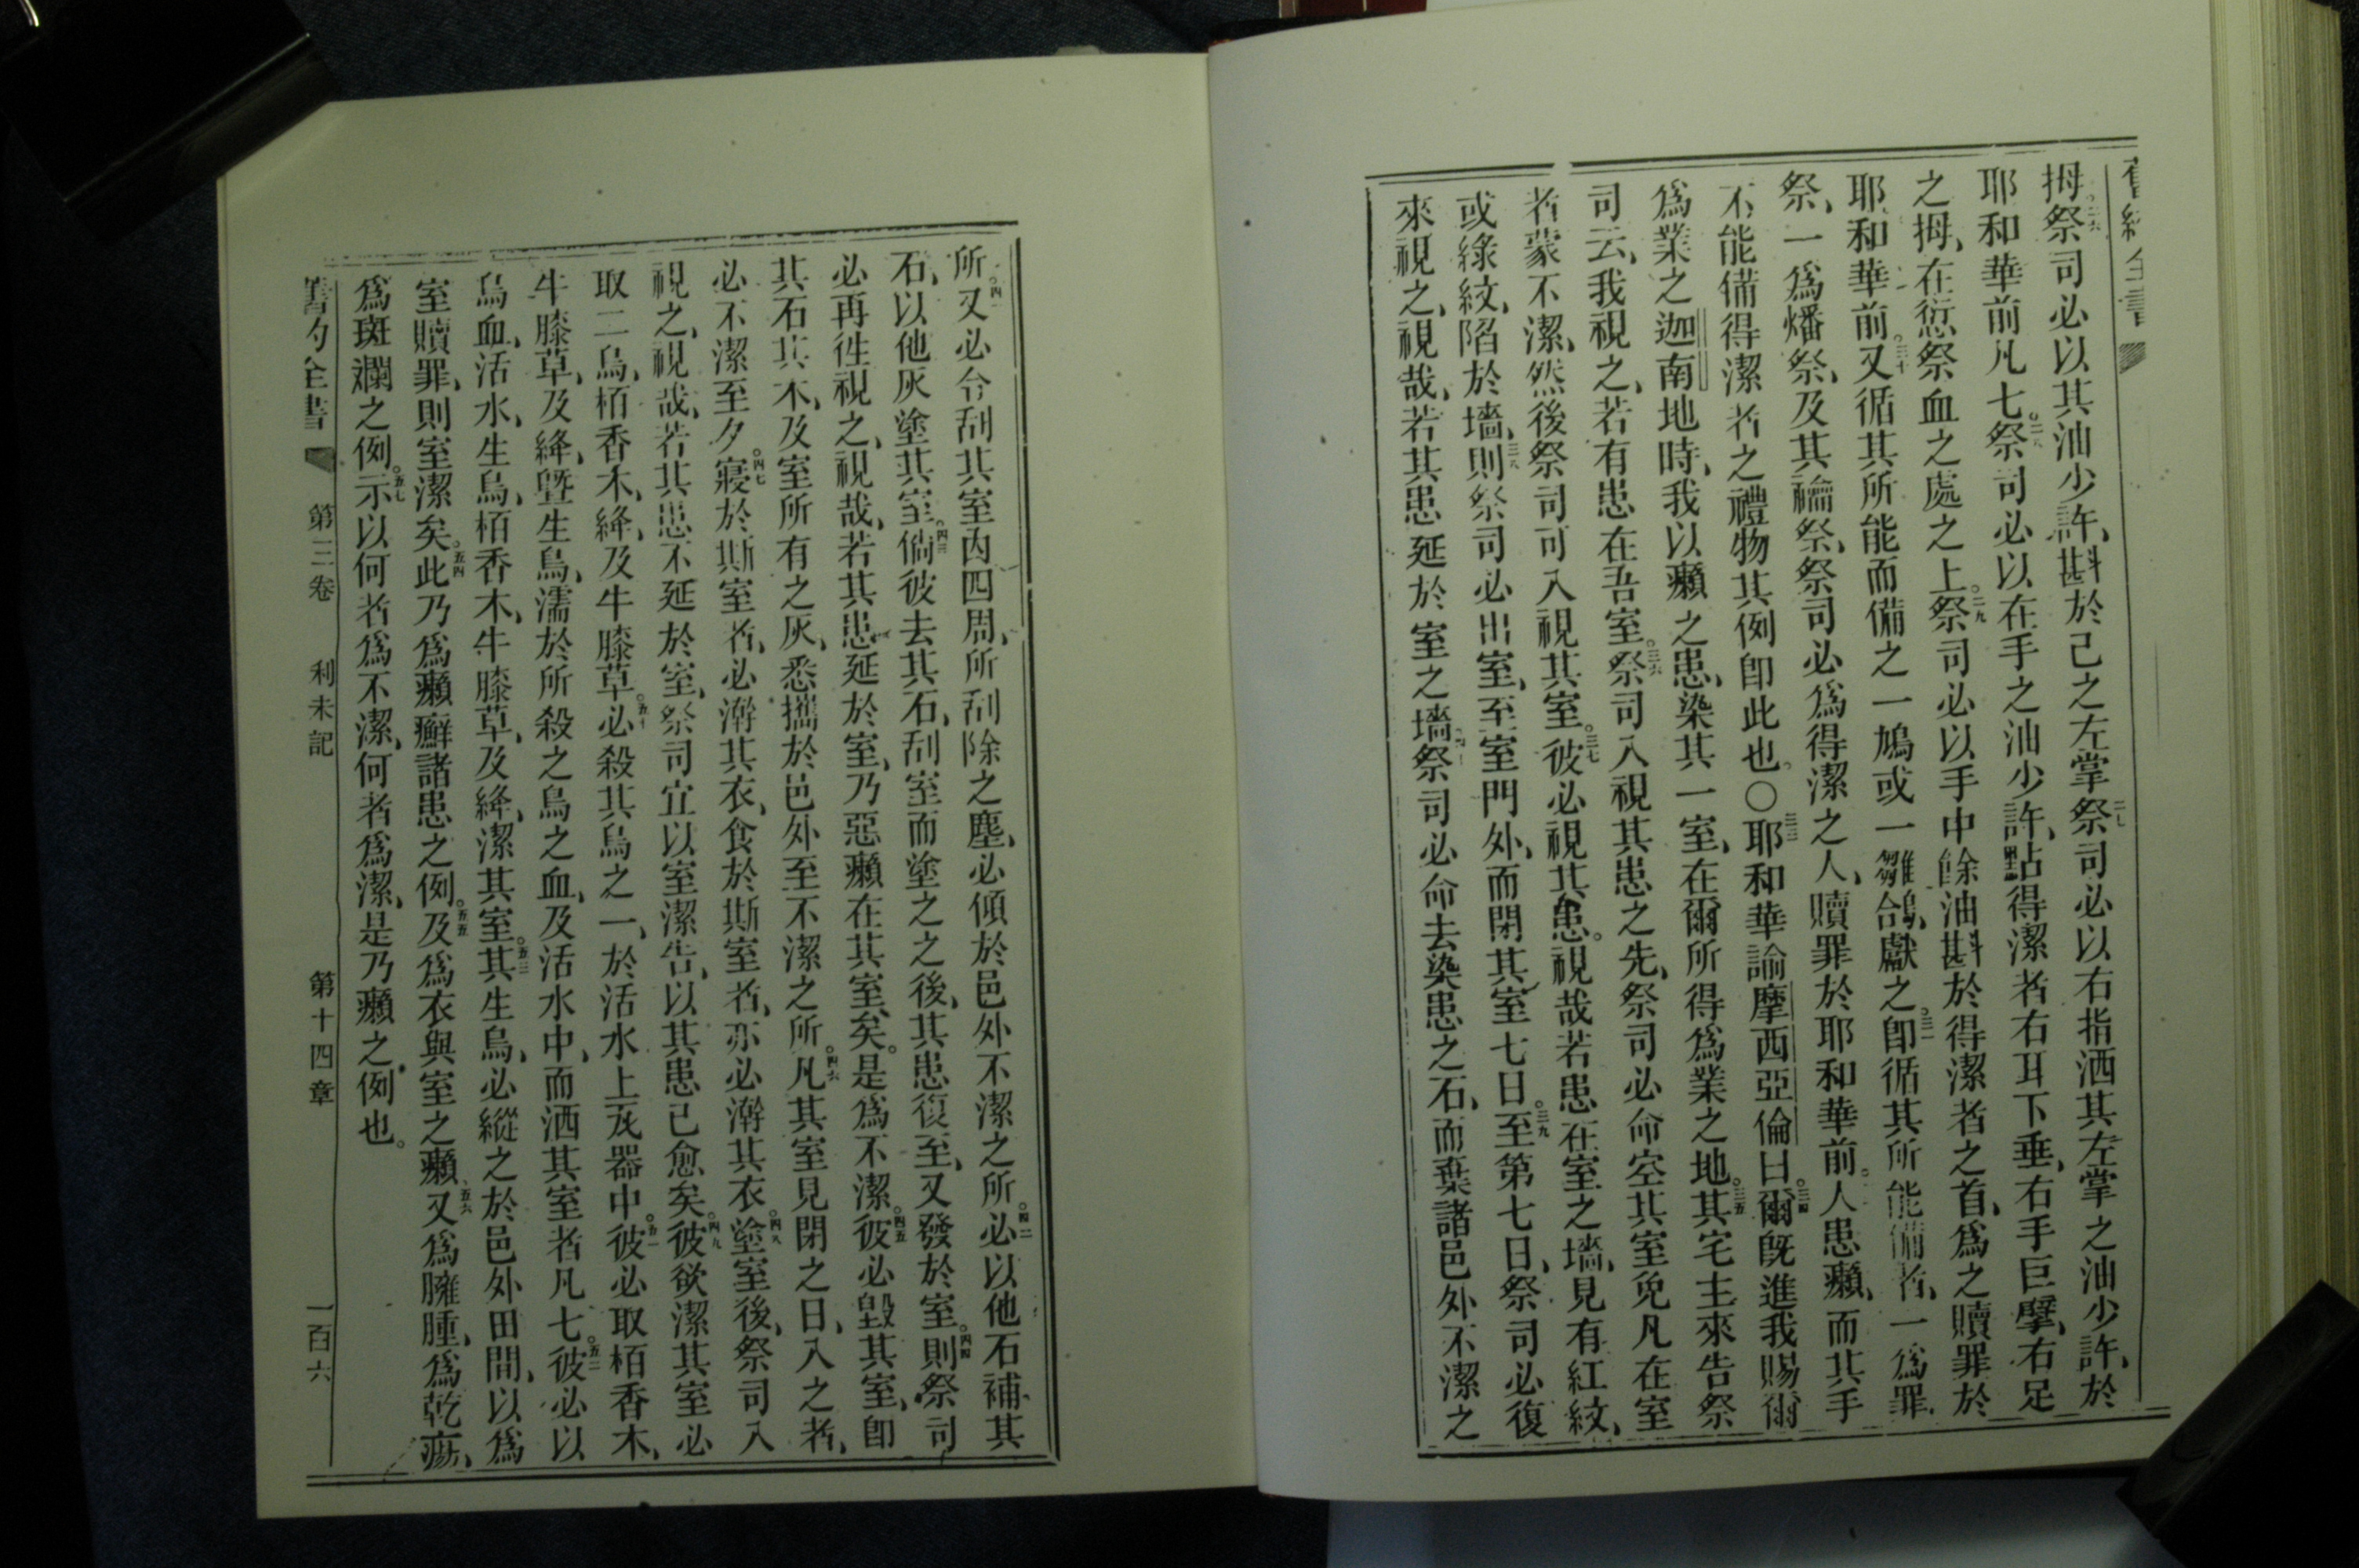 舊約全書
拇、二六祭司必以其油少許、斟於己之左掌二七祭司必以右指洒其左掌之油少許、於
耶和華前凡七。二八祭司必以在手之油少許、點得潔者右耳下垂、右手巨擘、右足
之拇、在愆祭血之處之上。二九祭司必以手中餘油斟於得潔者之首、爲之贖罪於
耶和華前。三十又循其所能而備之一鳩或一雛鴿、獻之。三一卽循其所能備者、一爲罪
祭、一爲燔祭、及其禴祭、祭司必爲得潔之人、贖罪於耶和華前。人患癩、而其手
不能備得潔者之禮物其例卽此也。〇三三耶和華諭摩西亞倫曰。三四爾旣進我賜爾
爲業之迦南地時、我以癩之患、染其一室、在爾所得爲業之地。三五其宅主來告祭
司云、我視之、若有患在吾室。三六祭司入視其患之先、祭司必命空其室免凡在室
者蒙不潔、然後祭司可入視其室。三七彼必視其患。視哉若患在室之墻、見有紅紋、
或綠紋、陷於墻、三八則祭司必出室、至室門外、而閉其室七日。三九至第七日、祭司必復
來視之、視哉、若其患延於室之墻。四十祭司必命去染患之石、而棄諸邑外不潔之
所。四一又必令刮其室內四周、所刮除之塵、必傾於邑外不潔之所。四二必以他石補其
石、以他灰塗其室。四三倘彼去其石、刮室而塗之之後、其患復至、又發於室。四四則祭司
必再徃視之、視哉、若其患延於室、乃惡癩在其室矣。是爲不潔。四五彼必毀其室、卽
其石其木、及室所有之灰、悉攜於邑外至不潔之所。四六凡其室見閉之日、入之者、
必不潔至夕。四七寢於斯室者、必澣其衣、食於斯室者、亦必澣其衣。四八塗室後、祭司入
視之、視哉、若其患不延於室、祭司宜以室潔告、以其患已愈矣。四九彼欲潔其室必
取二鳥、栢香木、絳、及牛膝草。五十必殺其鳥之一、於活水上瓦器中。五一彼必取栢香木、
牛膝草、及絳、曁生鳥、濡於所殺之鳥之血、及活水中、而洒其室者凡七。五二彼必以
鳥血、活水、生鳥、栢香木、牛膝草、及絳、潔其室。五三其生鳥、必縱之於邑外田間、以爲
室贖罪、則室潔矣。五四此乃爲癩癬諸患之例。五五及爲衣與室之癩、五六又爲臃腫、爲乾瘍、
爲斑斕之例。五七示以何者爲不潔、何者爲潔、是乃癩之例也。
舊約全書　第三卷　利未記　第十四章　一百六